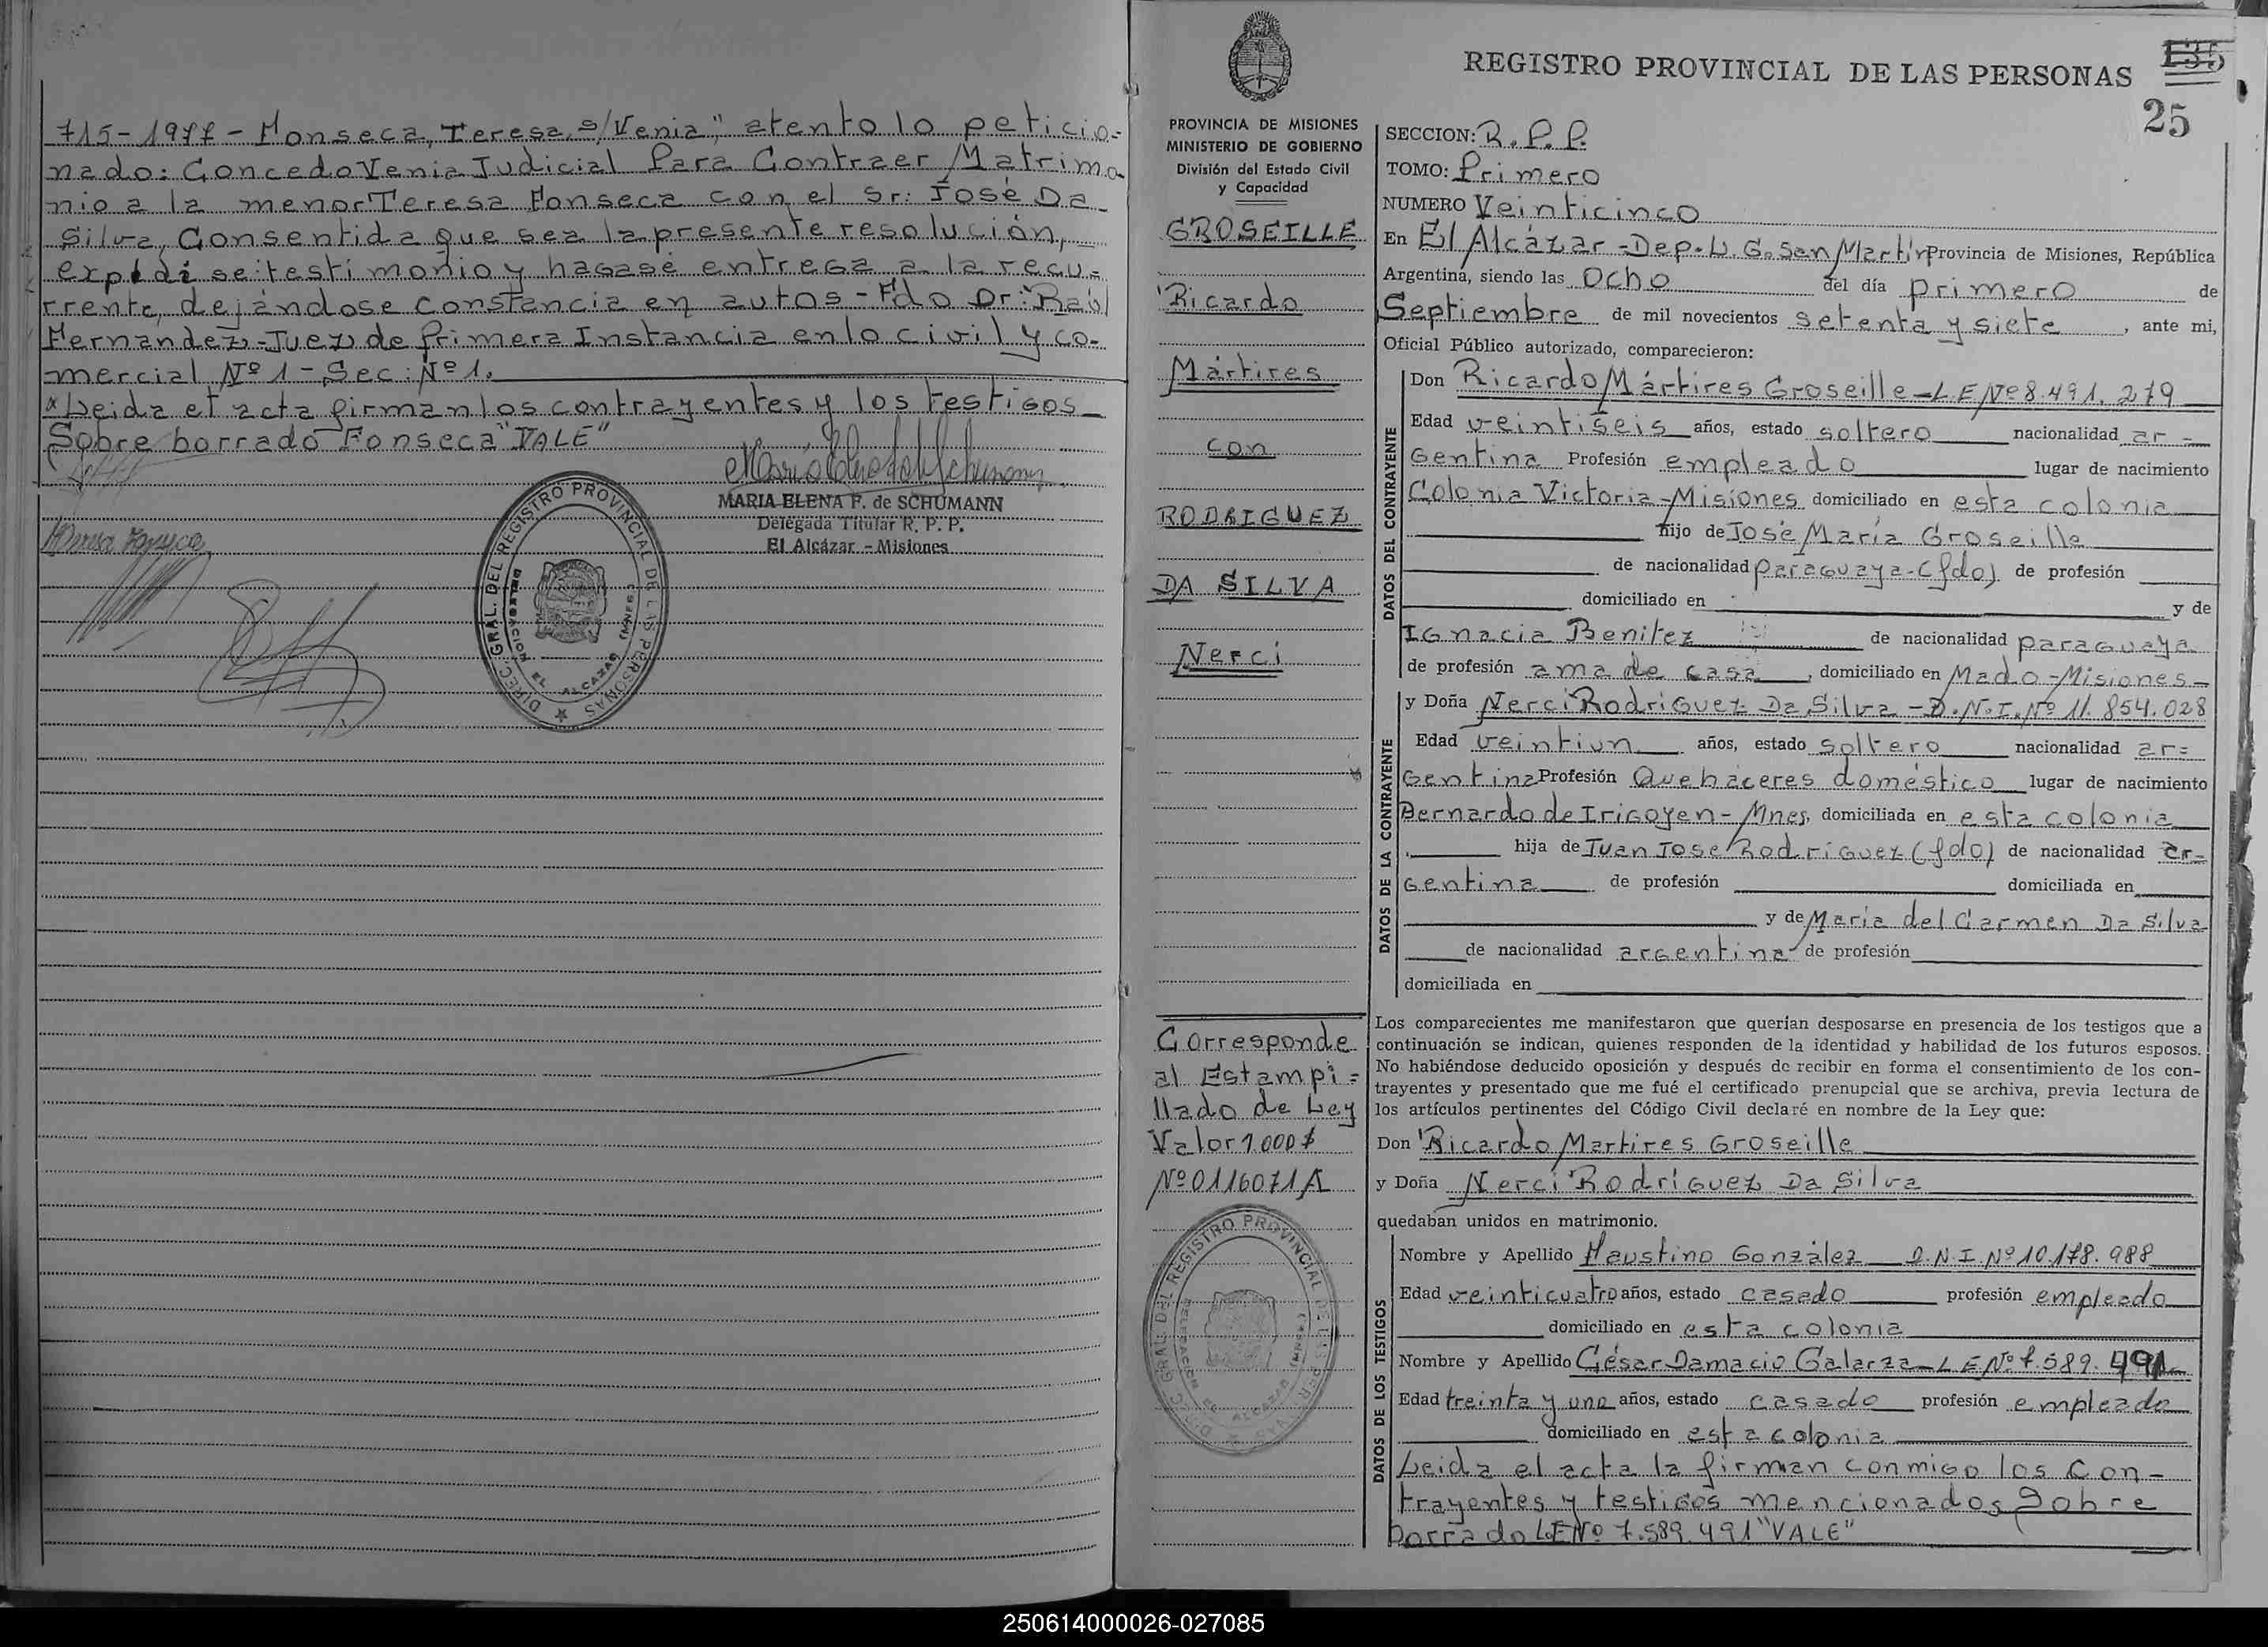 715-1977- Fonseca, Teresa s/Venia", atento lo peticio-
nado: Concedo Venia Judicial Para Contraer Matrimo-
nio a la menor Teresa Fonseca con el Sr: José Da
Silva, Consentida que sea la presente resolución,
expídi se: testimonio y hagase entrega a la recu-
rrente, dejándose constancia en autos - Fdo Dr: Raúl
Fernandez - Juez de Primera Instancia en lo civil y co-
mercial Nº 1 - Sec: Nº 1.
Leida el acta firman los contrayentes y los testigos
Sobre borrado Fonseca "VALE"
MARIA ELENA F. de SCHUMANN
Delegada Titular R. P. P.
El Alcázar - Misiones
DIREC. GRAL. DEL REGISTRO PROVINCIAL DE LAS PERSONAS
DELEGACION EL ALCAZAR (MNES.)
REGISTRO PROVINCIAL DE LAS PERSONAS
135
25
PROVINCIA DE MISIONES
MINISTERIO DE GOBIERNO
División del Estado Civil
y Capacidad
GROSEILLE
Ricardo
Mártires
con
RODRIGUEZ
DA SILVA
Nerci
Corresponde
al Estampi=
llado de Ley
Valor 1.000$
Nº 0116071A
DIREC. GRAL. DEL REGISTRO PROVINCIAL DE LAS PERSONAS
DELEGACION EL ALCAZAR (MNES.)
SECCION: R. P. P.
TOMO: Primero
NUMERO Veinticinco
En El Alcázar - Dep. L. G. San Martín Provincia de Misiones, República
Argentina, siendo las Ocho del día primero de
Septiembre de mil novecientos setenta y siete, ante mi,
Oficial Público autorizado, comparecieron:
DATOS DEL CONTRAYENTE
Don Ricardo Mártires Groseille - L E Nº 8.491.279
Edad veintiseis años, estado soltero nacionalidad ar-
gentina Profesión empleado lugar de nacimiento
Colonia Victoria - Misiones domiciliado en esta colonia
hijo de José María Groseille
de nacionalidad paraguaya - (fdo) de profesión
domiciliado en y de
Ignacia Benitez de nacionalidad paraguaya
de profesión ama de casa, domiciliado en Mado - Misiones -
DATOS DE LA CONTRAYENTE
y Doña Nerci Rodriguez Da Silva - D. N. I. Nº 11.854.028
Edad veintiun años, estado soltero nacionalidad ar=
gentina Profesión Quehaceres doméstico lugar de nacimiento
Bernardo de Irigoyen - Mnes, domiciliada en esta colonia
hija de Juan Jose Rodríguez (fdo) de nacionalidad ar-
gentina de profesión domiciliada en
y de Maria del Carmen Da Silva
de nacionalidad argentina de profesión
domiciliada en
Los comparecientes me manifestaron que querían desposarse en presencia de los testigos que a
continuación se indican, quienes responden de la identidad y habilidad de los futuros esposos.
No habiéndose deducido oposición y después de recibir en forma el consentimiento de los con-
trayentes y presentado que me fué el certificado prenupcial que se archiva, previa lectura de
los artículos pertinentes del Código Civil declaré en nombre de la Ley que:
Don Ricardo Martires Groseille
y Doña Nerci Rodríguez Da Silva
quedaban unidos en matrimonio.
DATOS DE LOS TESTIGOS
Nombre y Apellido Faustino González D. N. I. Nº 10.178.988
Edad veinticuatro años, estado casado profesión empleado
domiciliado en esta colonia
Nombre y Apellido César Damacio Galarza - L E Nº 7.589.491
Edad treinta y uno años, estado casado profesión empleado
domiciliado en esta colonia
Leida el acta la firman conmigo los con-
trayentes y testigos mencionados Sobre
borrado L.E Nº 7.589.491 "VALE"
250614000026-027085